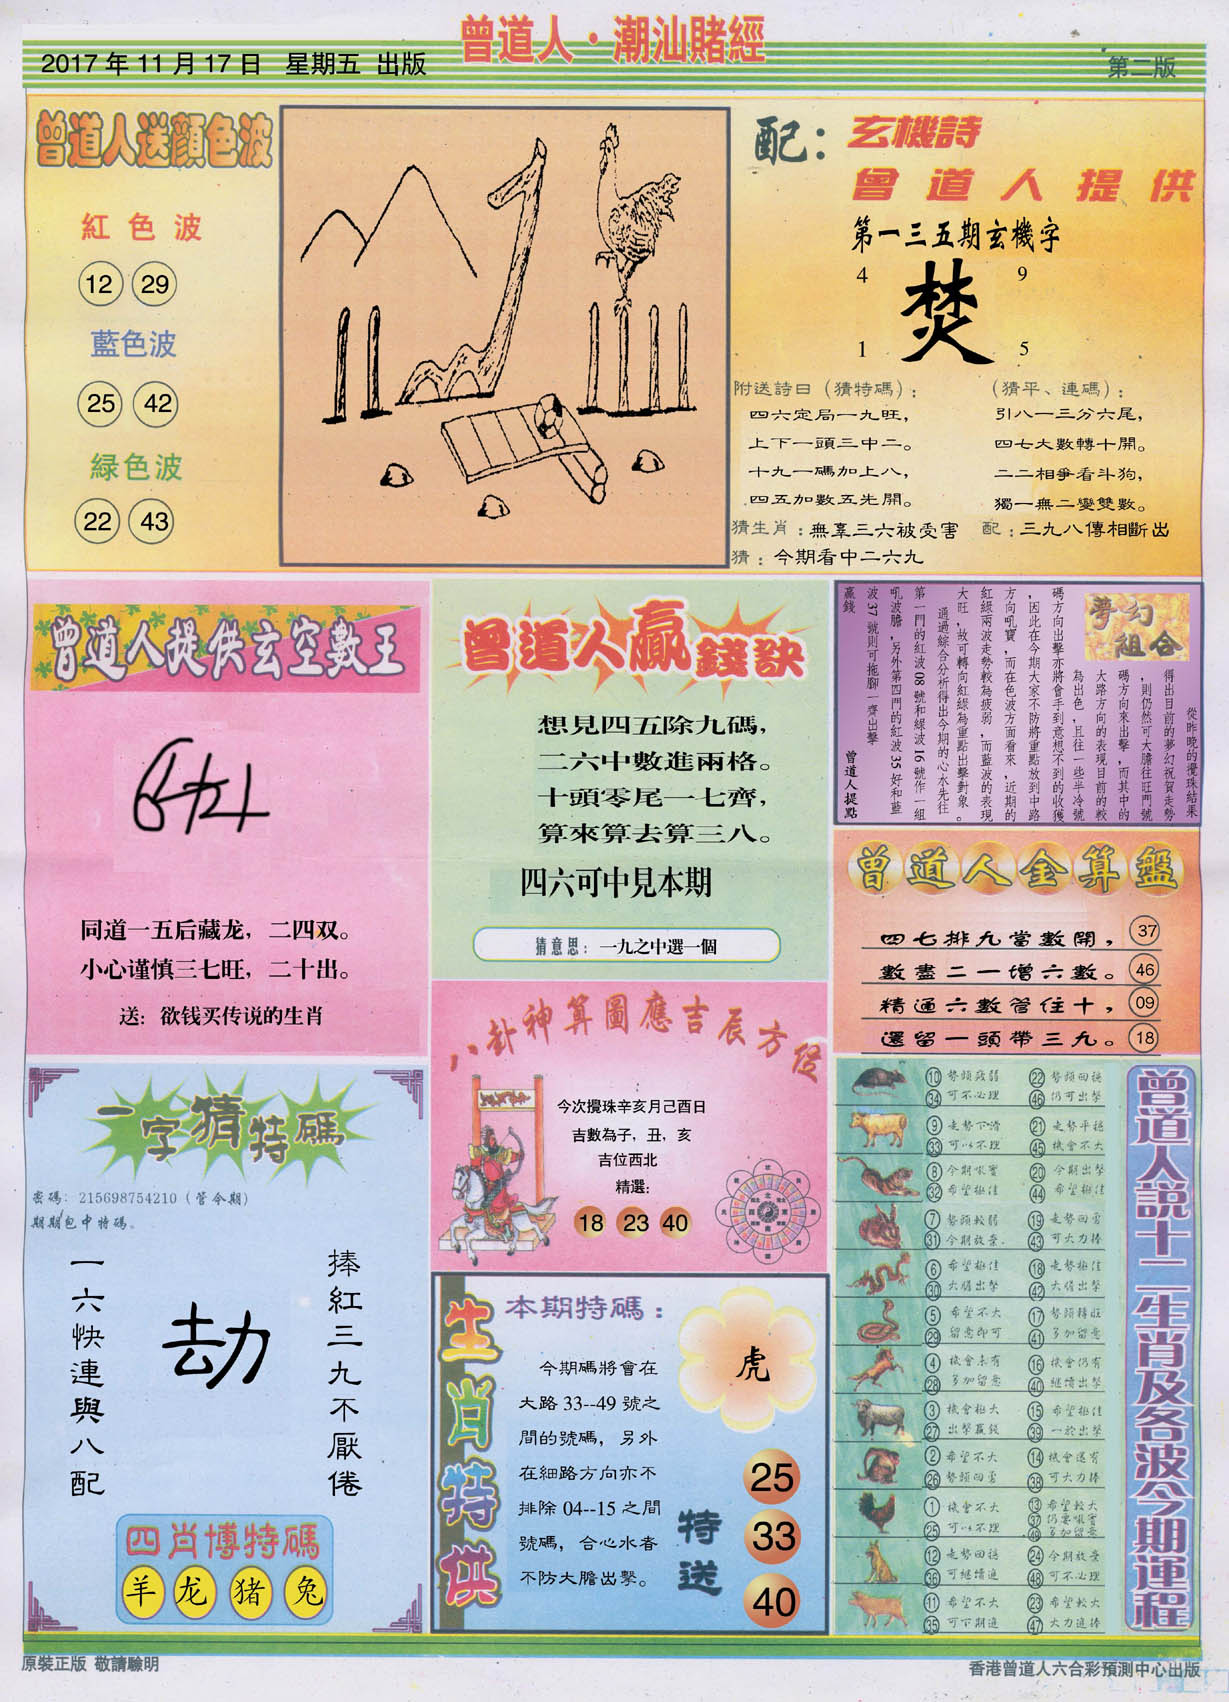 曾道人·潮汕賭經
2017年11月17日 星期五 出版
第二版
曾道人送顏色波
紅色波
12 29
藍色波
25 42
緑色波
22 43
配：玄機詩
曾道人提供
第一三五期玄機字
4 9
焚
1 5
附送詩曰（猜特碼）：
四六定局一九旺，
上下一頭三中二。
十九一碼加上八，
四五加數五先開。
（猜平、連碼）：
引八一三分六尾，
四七大數轉十開。
二二相爭看斗狗，
獨一無二變雙數。
猜生肖：無辜三六被受害
配：三九八傳相斷出
猜：今期看中二六九
曾道人提供玄空數王
同道一五后藏龙，二四双。
小心谨慎三七旺，二十出。
送：欲钱买传说的生肖
曾道人贏錢訣
想見四五除九碼，
二六中數進兩格。
十頭零尾一七齊，
算來算去算三八。
四六可中見本期
猜意思：一九之中選一個
夢幻組合
從昨晚的攪珠結果
得出目前的夢幻祝賀走勢
，則仍然可大膽往旺門號
碼方向來出擊，而其中的
大路方向的表現目前的較
為出色，且往一些半冷號
碼方向出擊亦將會手到意想不到的收獲
，因此在今期大家不防將重點放到中路
方向吼寶，而在色波方面看來，近期的
紅綠兩波走勢較為疲弱，而藍波的表現
大旺，故可轉向紅綠為重點出擊對象。
通過綜合分析得出今期的心水先往
第一門的紅波08號和綠波16號作一組
吼波膽，另外第四門的紅波35好和藍
波37號則可拖腳一齊出擊
贏錢
曾道人提點
曾道人金算盤
四七排九當數開， 37
數盡二一增六數。 46
精通六數管住十， 09
還留一頭帶三九。 18
八卦神算圖應吉辰方位
今次攪珠辛亥月己酉日
吉數為子，丑，亥
吉位西北
精選：
18 23 40
一字猜特碼
密碼：215698754210（管今期）
期期包中特碼。
捧紅三九不厭倦
劫
一六快連與八配
四肖博特碼
羊 龙 猪 兔
生肖特供
本期特碼：
今期碼將會在
大路33--49號之
間的號碼，另外
在細路方向亦不
排除04--15之間
號碼，合心水者
不防大膽出擊。
虎
特送
25
33
40
曾道人説十二生肖及各波今期運程
10 34 勢頭疲弱 可不必理
22 46 勢頭回穩 仍可出擊
9 33 走勢下滑 可以不理
21 45 走勢平穩 機會不大
8 32 今期吼寶 希望極佳
20 44 今期出擊 希望極佳
7 31 勢頭較弱 今期放棄
19 43 走勢回勇 可大力捧
6 30 希望極佳 大膽出擊
18 42 走勢極佳 大膽出擊
5 29 希望不大 留意即可
17 41 勢頭轉旺 多加留意
4 28 機會未有 多加留意
16 40 機會仍有 繼續出擊
3 27 機會極大 出擊贏錢
15 39 希望極佳 一於出擊
2 26 希望不大 勢頭回勇
14 38 機會還有 可大力捧
1 25 機會不大 可以不理
13 37 49 希望較大 仍要吼實 多加留意
12 36 走勢回穩 可繼續追
24 48 今期放棄 可不必理
11 35 希望不大 可下期追
23 47 希望較大 大力追捧
原裝正版 敬請驗明
香港曾道人六合彩預測中心出版